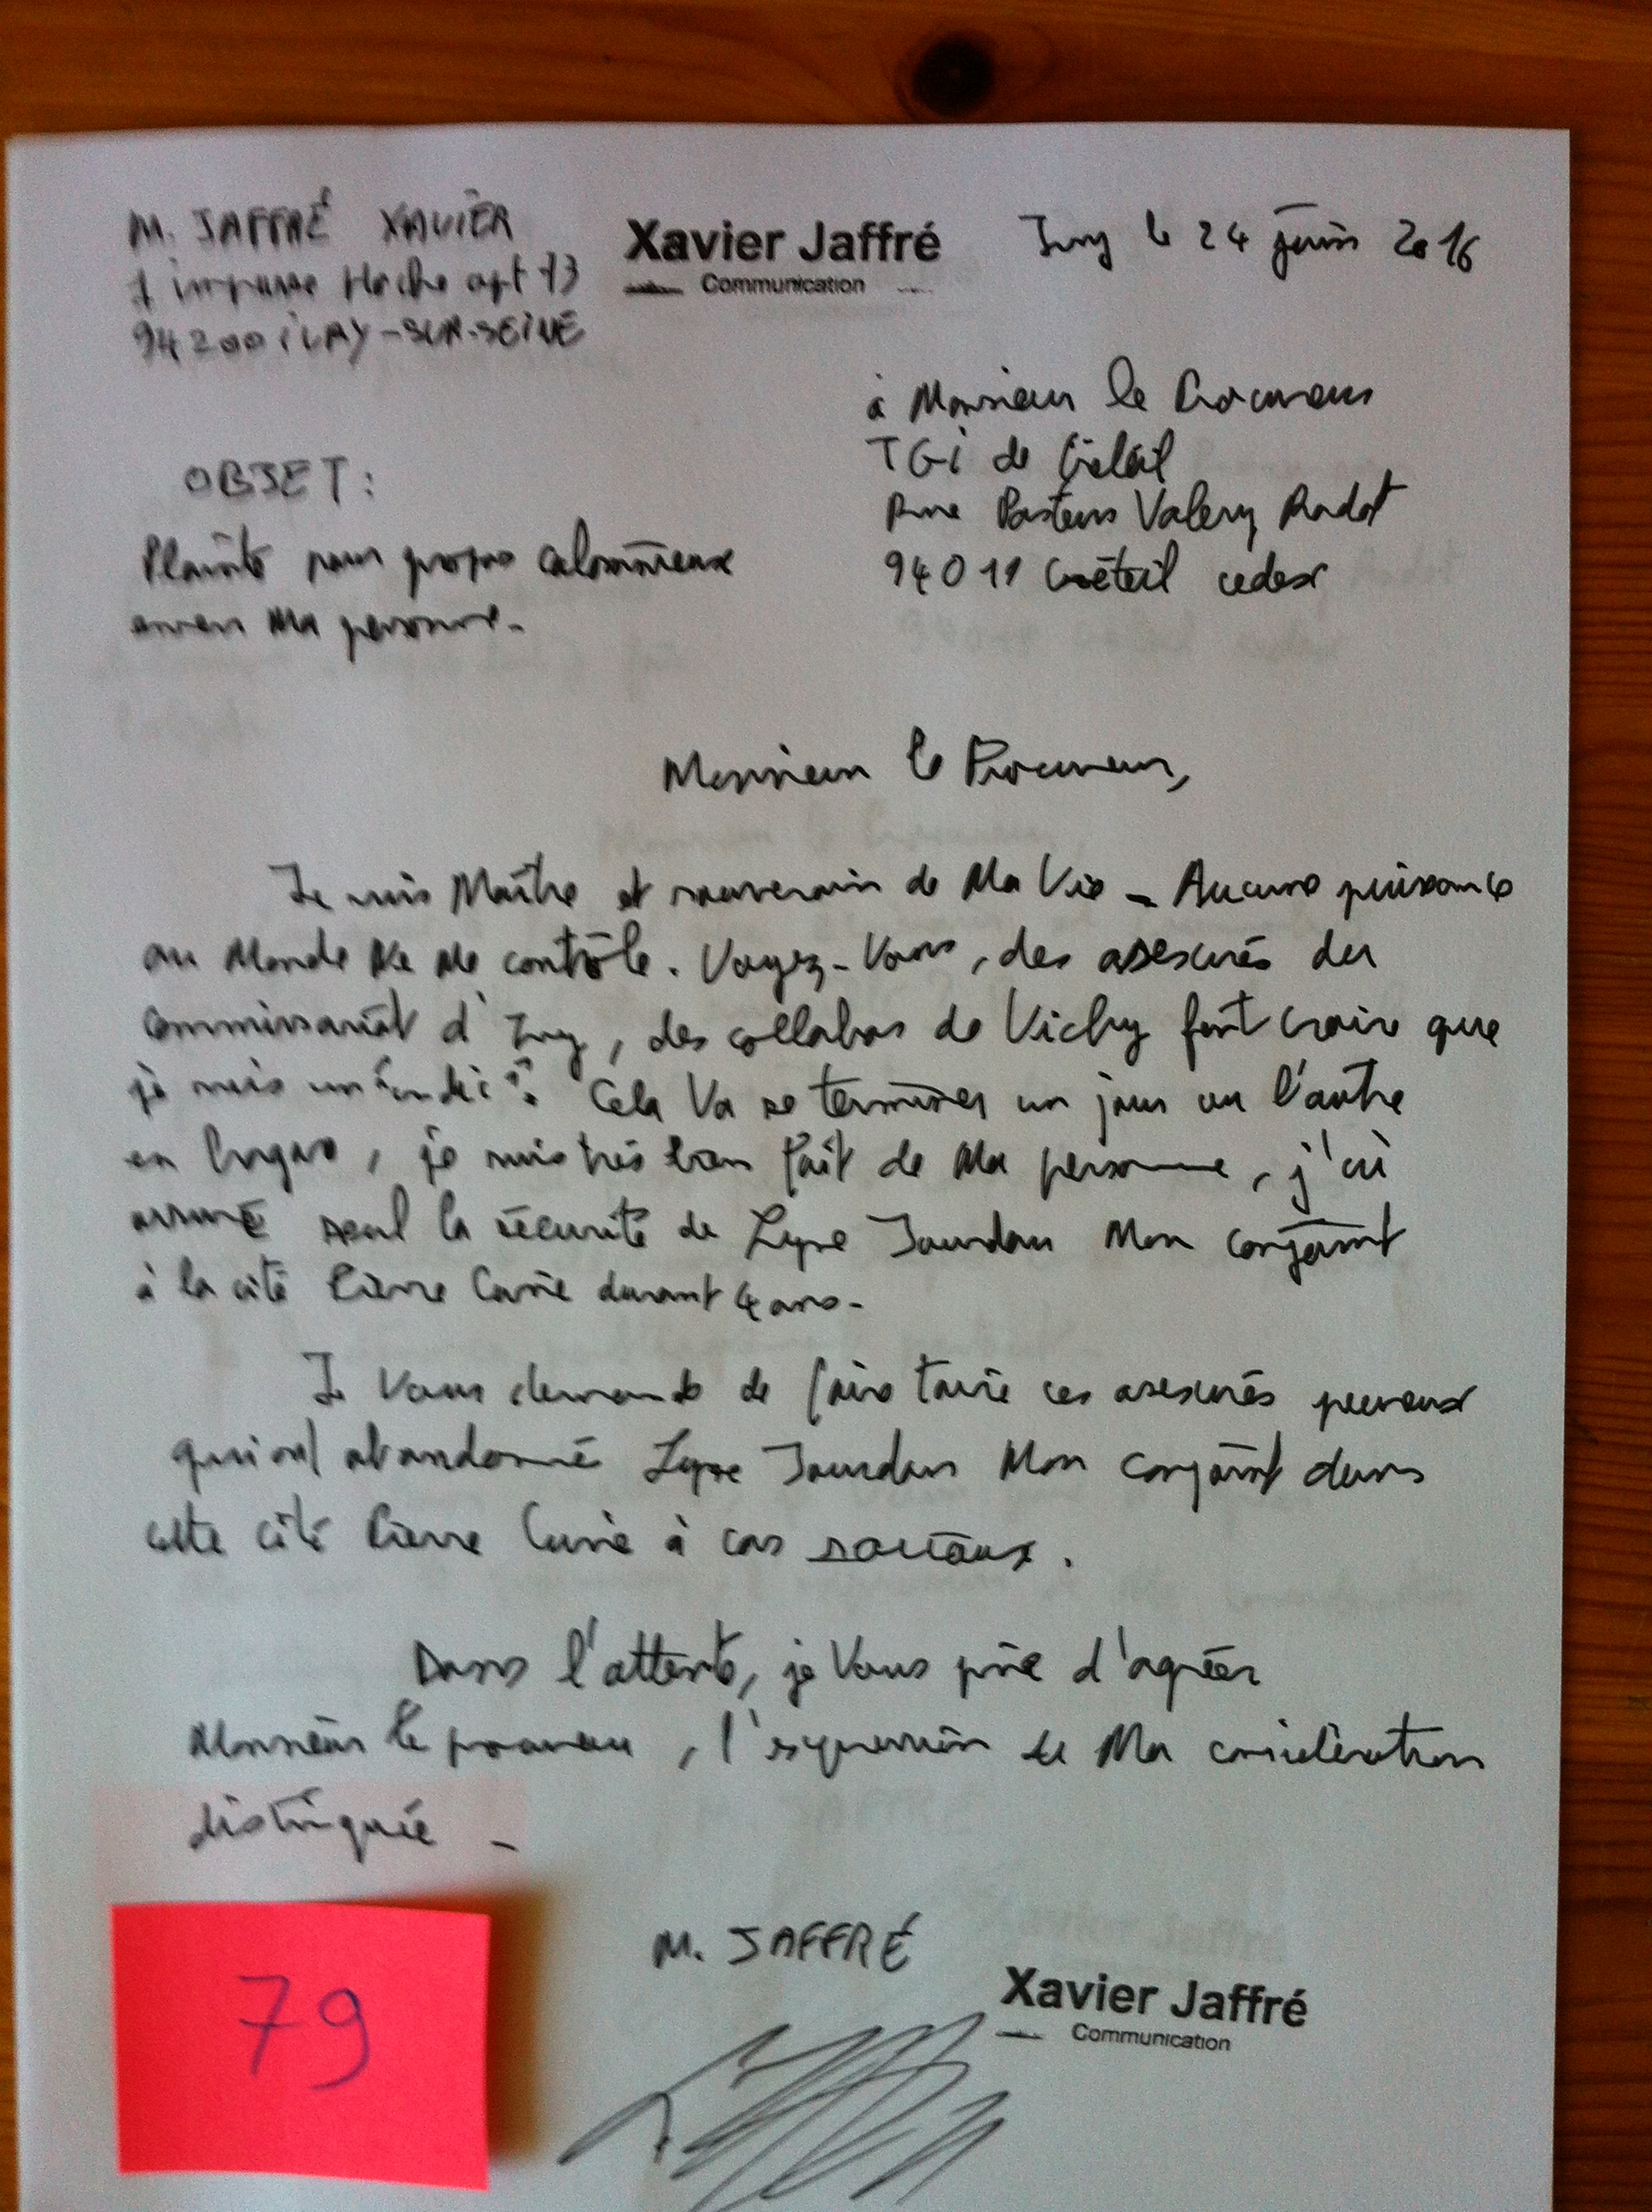 M. JAFFRÉ XAVIER
1 impasse Hoche apt 13
94200 iVRY-SUR-SEINE
Xavier Jaffré
Communication
Ivry le 24 juin 2016
à Monsieur le Procureur
TGi de Créteil
Rue Pasteur Valery Radot
94011 Créteil cedex
OBJET:
Plainte pour propos calomnieux
envers Ma personne.
Monsieur le Procureur,
Je suis Maître et souverain de Ma Vie - Aucune puissance
au Monde Ne Me contrôle. Voyez-Vous, des asexués du
commissariat d'Ivry, des collabos de Vichy font croire que
je suis un indic? Cela Va se terminer un jour ou l'autre
en , je suis très bien fait de Ma personne, j'ai
assuré seul la sécurité de Lyne Jourdan Mon conjoint
à la cité Pierre Curie durant 4 ans-
Je Vous demande de faire taire ces asexués peureux
qui ont abandonné Lyne Jourdan Mon conjoint dans
cette cité Pierre Curie à cas sociaux.
Dans l'attente, je Vous prie d'agréer
Monsieur le procureur, l'expression de Ma considération
distinguée -
M. JAFFRÉ
Xavier Jaffré
Communication
79